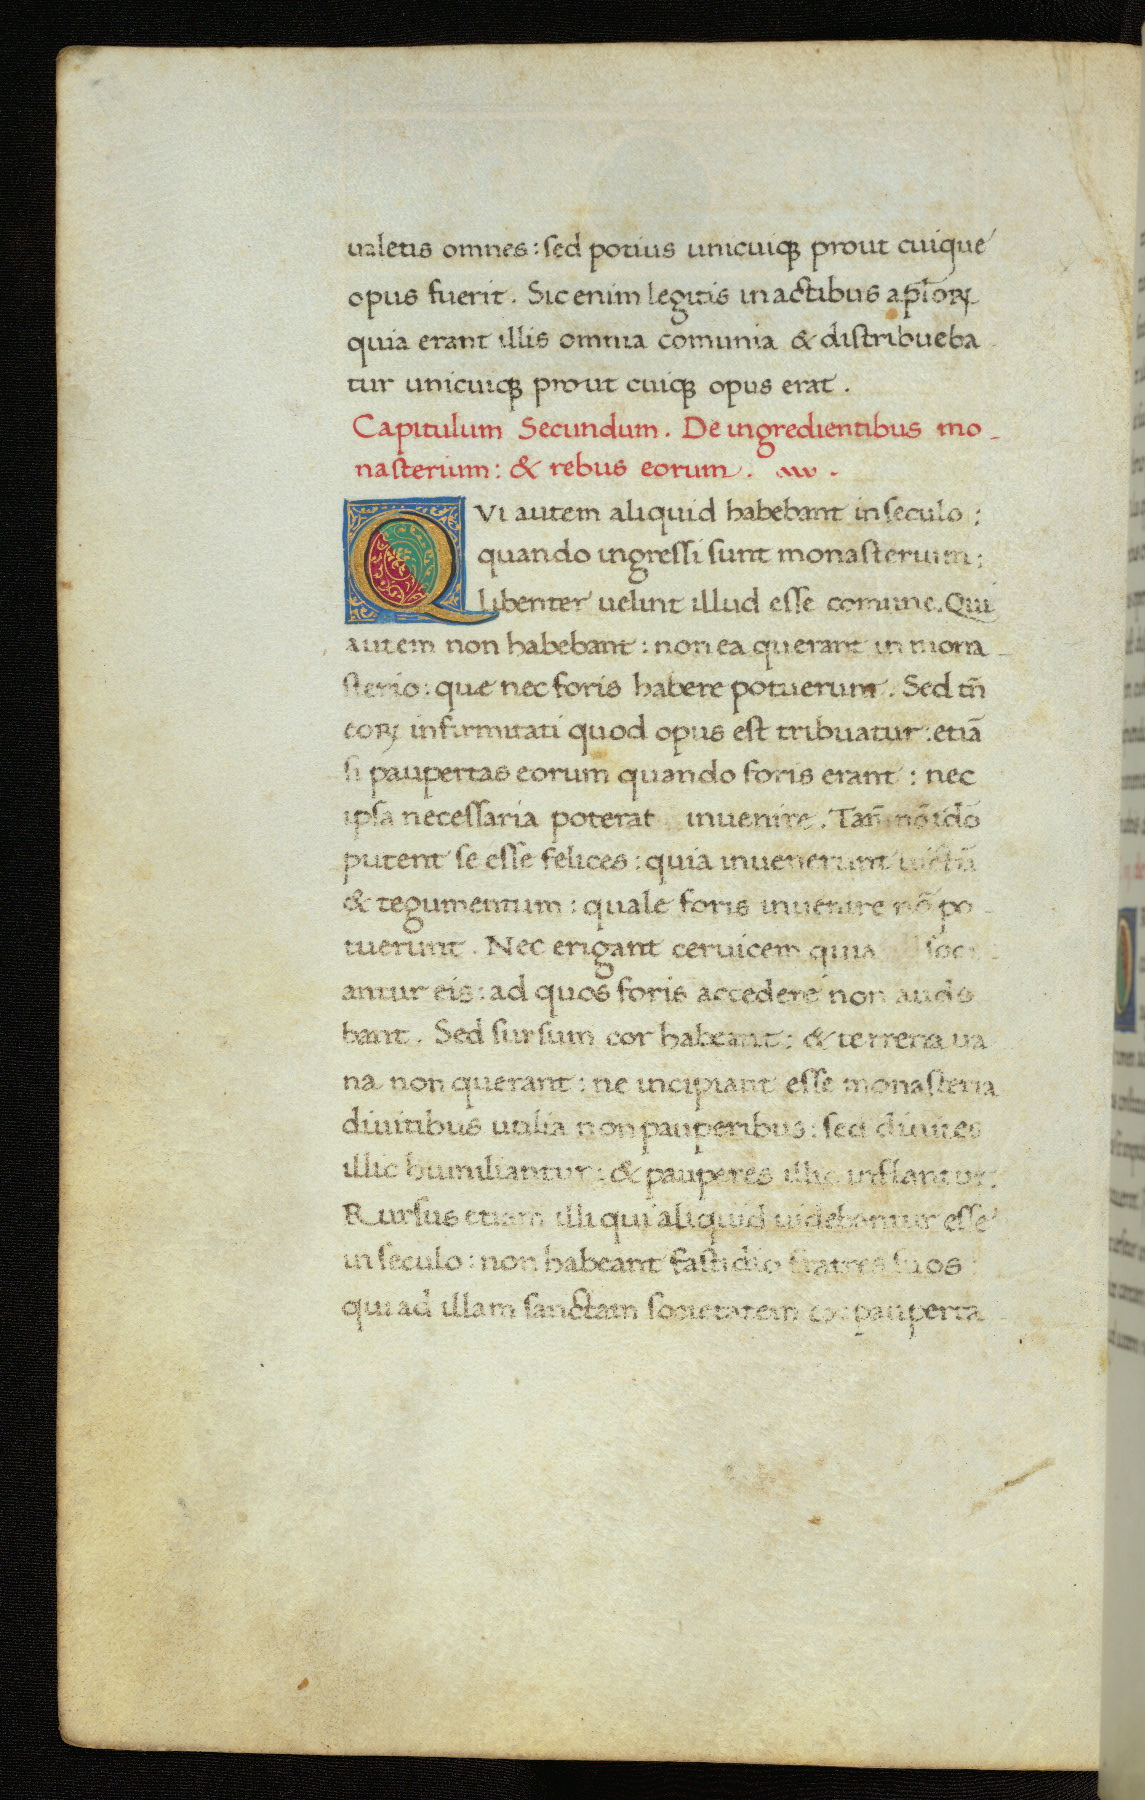 ualetis omnes: sed potius unicuiqꝫ prout cuique
opus fuerit. Sic enim legitis in actibus apl̄oꝝ
quia erant illis omnia comunia & distribueba
tur unicuiqꝫ prout cuiqꝫ opus erat.
Capitulum Secundum. De ingredientibus mo-
nasterium: & rebus eorum.
QVi autem aliquid habebant in seculo:
quando ingressi sunt monasterium:
libenter uelint illud esse comune. Qui
autem non habebant: non ea querant in mona-
sterio: que nec foris habere potuerunt. Sed tn̄
eoꝝ infirmitati quod opus est tribuatur: etiā
si paupertas eorum quando foris erant: nec
ipsa necessaria poterat inuenire. Tan̄ nō idō
putent se esse felices: quia inuenerunt uictū
& tegumentum: quale foris inuenire nō po-
tuerunt. Nec erigant ceruicem quia soci-
antur eis: ad quos foris accedere non aude
bant. Sed sursum cor habeant: & terrena ua
na non querant: ne incipiant esse monasteria
diuitibus utilia non pauperibus: sed diuites
illic humiliantur: & pauperes illic inflantur.
Rursus etiam illi qui aliquid uidebantur esse
in seculo: non habeant fastidio fratres suos:
qui ad illam sanctam societatem ex pauperta